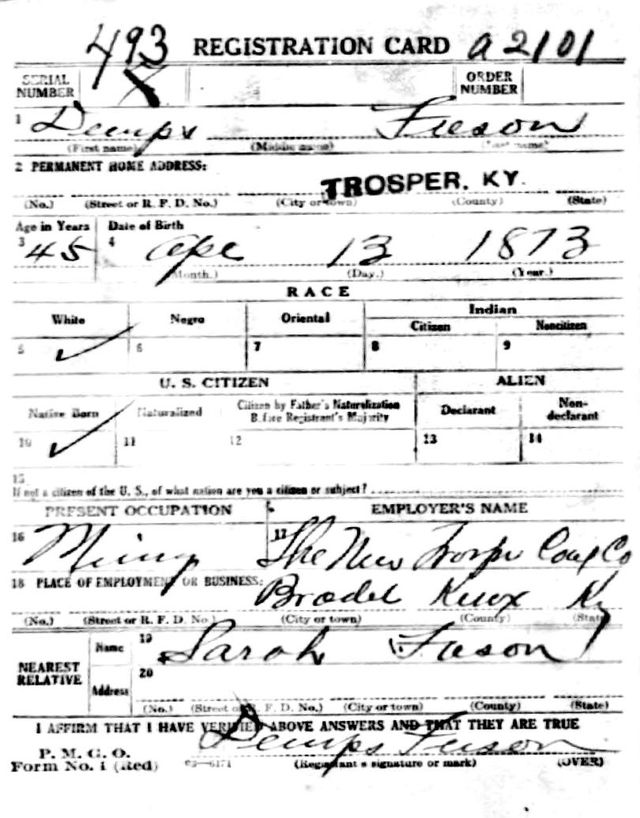 493 REGISTRATION CARD a 2101
SERIAL NUMBER ORDER NUMBER
1 Demps Fuson
(First name) (Middle name) (Last name)
2 PERMANENT HOME ADDRESS:
TROSPER, KY.
(No.) (Street or R. F. D. No.) (City or town) (County) (State)
Age in Years Date of Birth
3 45 4 Apr 13 1873
(Month.) (Day.) (Year.)
RACE
White Negro Oriental Indian
Citizen Noncitizen
5 ✓ 6 7 8 9
U. S. CITIZEN ALIEN
Native Born Naturalized Citizen by Father's Naturalization Before Registrant's Majority Declarant Non-declarant
10 ✓ 11 12 13 14
15
If not a citizen of the U. S., of what nation are you a citizen or subject?
PRESENT OCCUPATION EMPLOYER'S NAME
16 17 The New Trosper Coal Co
18 PLACE OF EMPLOYMENT OR BUSINESS:
Knox Ky
(No.) (Street or R. F. D. No.) (City or town) (County) (State)
NEAREST RELATIVE Name 19 Sarah Fuson
Address 20
(No.) (Street or R. F. D. No.) (City or town) (County) (State)
I AFFIRM THAT I HAVE VERIFIED ABOVE ANSWERS AND THAT THEY ARE TRUE
P. M. G. O.
Demps Fuson
Form No. 1 (Red) 03—6171 (Registrant's signature or mark) (OVER)